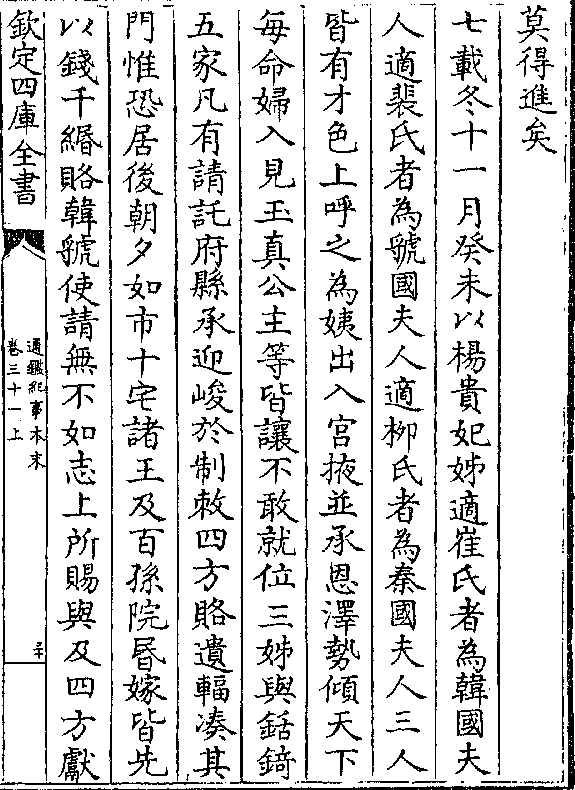 莫得進矣
七載冬十一月癸未以楊貴妃姊適崔氏者為韓國夫
人適裴氏者為虢國夫人適柳氏者為秦國夫人三人
皆有才色上呼之為姨出入宮掖並承恩澤勢傾天下
每命婦入見玉真公主等皆讓不敢就位三姊與銛錡
五家凡有請託府縣承迎峻於制敕四方賂遺輻凑其
門惟恐居後朝夕如市十宅諸王及百孫院昬嫁皆先
以錢千緡賂韓虢使請無不如志上所賜與及四方獻
欽定四庫全書
通鑑紀事本末
卷三十一上